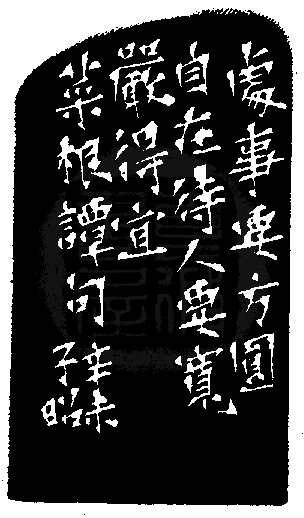 處事要方圓
自在待人要寬
嚴得宜
菜根譚句
辛未
子